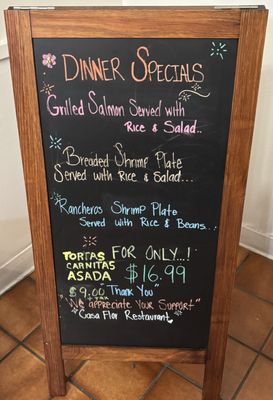 DINNER SPECIALS
Grilled Salmon Served with
Rice & Salad..
Breaded Shrimp Plate
Served with Rice & Salad...
Rancheros Shrimp Plate
Served with Rice & Beans...
TORTAS FOR ONLY...!
CARNITAS $16.99
ASADA
$9.00 + TAX "Thank You"
"We appreciate Your Support"
Casa Flor Restaurant